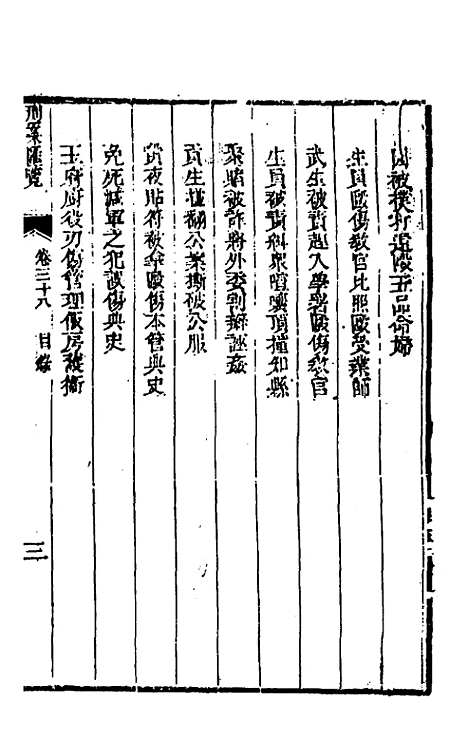 因被撲責逞毆五品命婦
生員毆傷教官比照毆受業師
武生被責趕入學署毆傷教官
生員被責糾眾喧嚷頂撞知縣
聚賭被詐將外委剃辮誣姦
貢生掀翻公案撕破公服
黃夜貼符被拿毆傷本管典史
免死減軍之犯毆傷典史
王府廚役刃傷管理飯房護衛
刑案匯覽
卷三十八 目錄
三